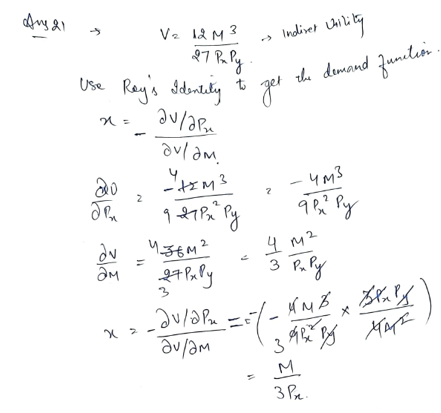 Ans 21 → V = 12 M³ / 27 Px Py. → Indiret Utility
Use Roy's Identity to get the demand function.
x = - ∂V/∂Px / ∂V/∂M.
∂V/∂Px = 4 -12 M³ / 9 27 Px² Py = - 4 M³ / 9 Px² Py
∂V/∂M = 4 36 M² / 27 Px Py 3 = 4/3 M² / Px Py
x = - ∂V/∂Px / ∂V/∂M = = - ( - 4 M 3 / 3 9 Px² Py × 3 Px Py / 4 M² )
= M / 3 Px.